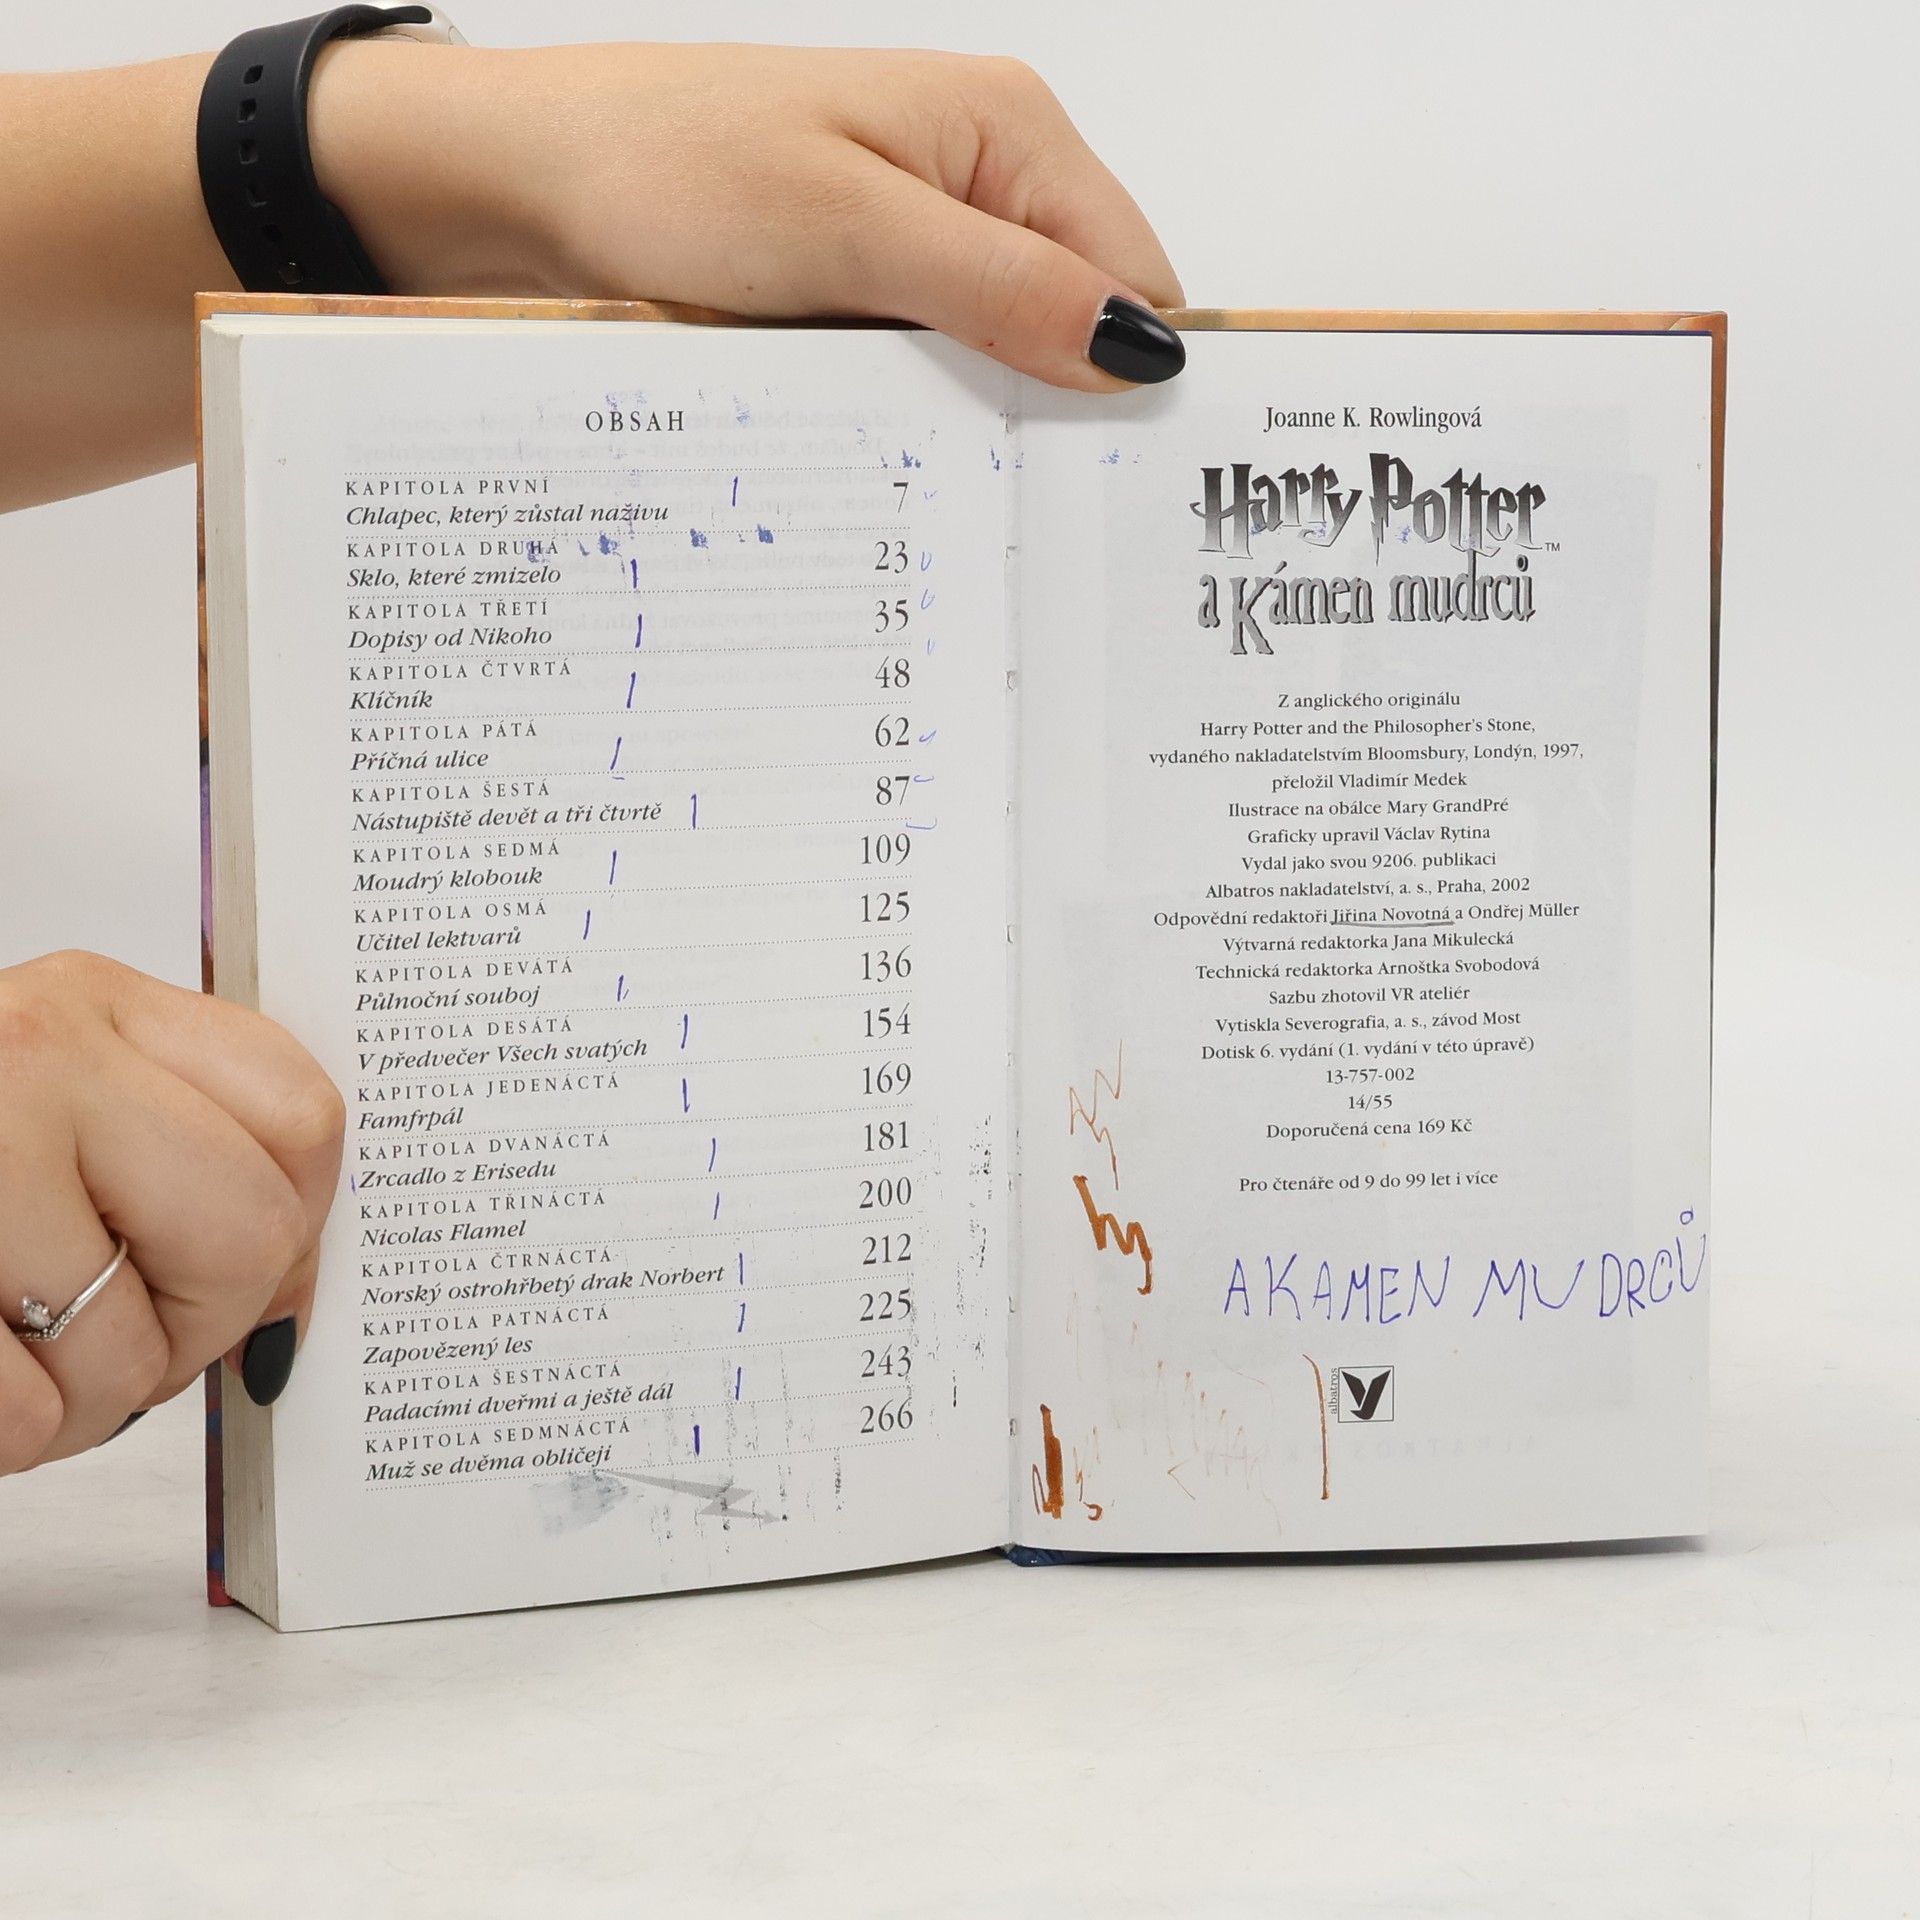 OBSAH
KAPITOLA PRVNÍ
Chlapec, který zůstal naživu 7
KAPITOLA DRUHÁ
Sklo, které zmizelo 23
KAPITOLA TŘETÍ
Dopisy od Nikoho 35
KAPITOLA ČTVRTÁ
Klíčník 48
KAPITOLA PÁTÁ
Příčná ulice 62
KAPITOLA ŠESTÁ
Nástupiště devět a tři čtvrtě 87
KAPITOLA SEDMÁ
Moudrý klobouk 109
KAPITOLA OSMÁ
Učitel lektvarů 125
KAPITOLA DEVÁTÁ
Půlnoční souboj 136
KAPITOLA DESÁTÁ
V předvečer Všech svatých 154
KAPITOLA JEDENÁCTÁ
Famfrpál 169
KAPITOLA DVANÁCTÁ
Zrcadlo z Erisedu 181
KAPITOLA TŘINÁCTÁ
Nicolas Flamel 200
KAPITOLA ČTRNÁCTÁ
Norský ostrohřbetý drak Norbert 212
KAPITOLA PATNÁCTÁ
Zapovězený les 225
KAPITOLA ŠESTNÁCTÁ
Padacími dveřmi a ještě dál 243
KAPITOLA SEDMNÁCTÁ
Muž se dvěma obličeji 266
Joanne K. Rowlingová
Harry Potter™
a Kámen mudrců
Z anglického originálu
Harry Potter and the Philosopher's Stone,
vydaného nakladatelstvím Bloomsbury, Londýn, 1997,
přeložil Vladimír Medek
Ilustrace na obálce Mary GrandPré
Graficky upravil Václav Rytina
Vydal jako svou 9206. publikaci
Albatros nakladatelství, a. s., Praha, 2002
Odpovědní redaktoři Jiřina Novotná a Ondřej Müller
Výtvarná redaktorka Jana Mikulecká
Technická redaktorka Arnoštka Svobodová
Sazbu zhotovil VR ateliér
Vytiskla Severografia, a. s., závod Most
Dotisk 6. vydání (1. vydání v této úpravě)
13-757-002
14/55
Doporučená cena 169 Kč
Pro čtenáře od 9 do 99 let i více
A KAMEN MUDRCŮ
albatros